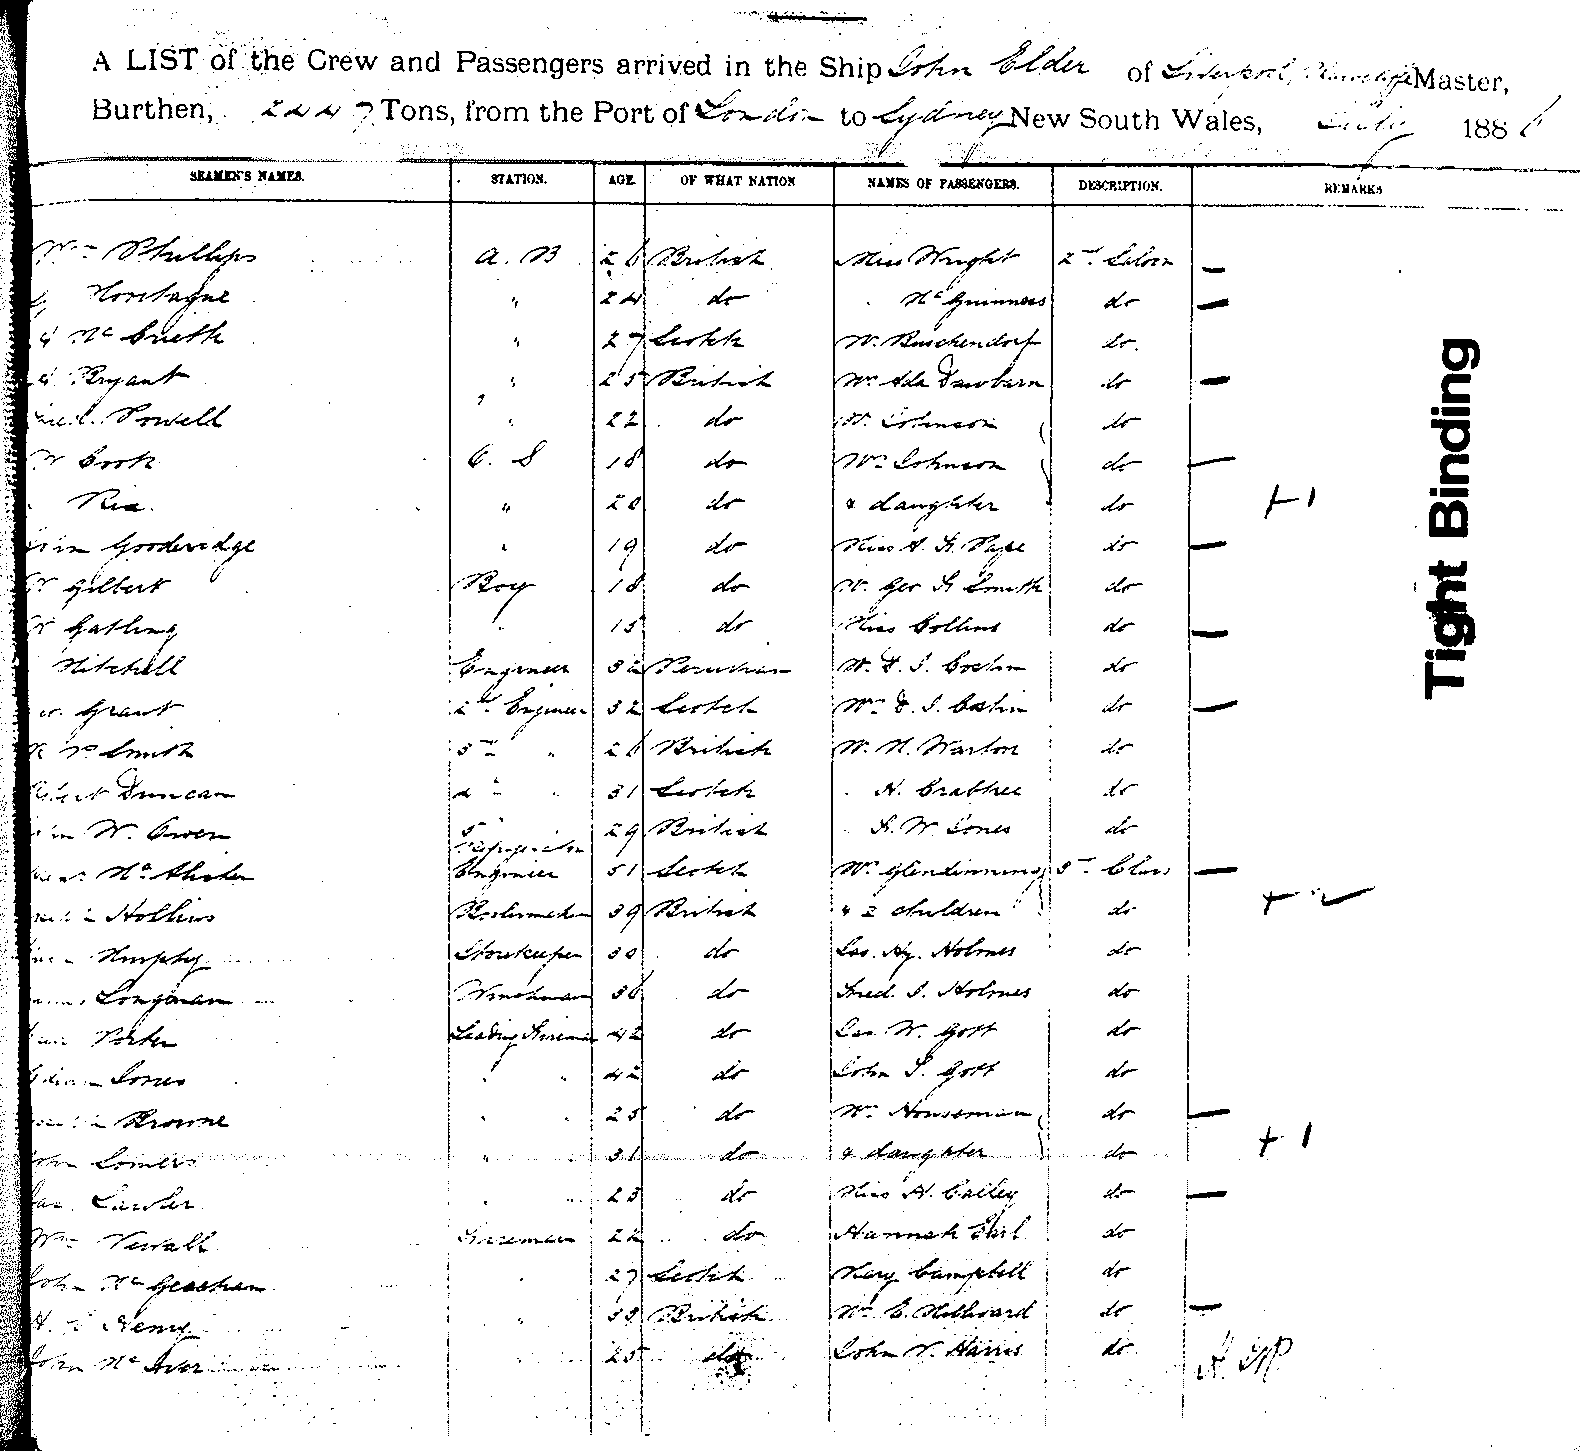 A LIST of the Crew and Passengers arrived in the Ship John Elder of Liverpool, Master,
Burthen, 2447 Tons, from the Port of London to Sydney New South Wales, July 1886
SEAMEN'S NAMES. STATION. AGE. OF WHAT NATION NAMES OF PASSENGERS. DESCRIPTION. REMARKS
Wm Phillips A. B 26 British Miss Wright 2nd Saloon —
Montague " 24 do " McGuinness do —
" 27 Scotch Mr. Buschendorf do.
Bryant " 25 British Mrs Ada Dawbarn do —
Powell " 22 do Mr. Johnson do
W Cook O. S 18 do Mrs Johnson do —
Rix. " 20 do & daughter do +1
Gooderidge " 19 do Miss A. F. Pape do —
W Gilbert Boy 18 do Mr. Geo F Smith do
W Gatling " 15 do Miss Collins do —
Mitchell Engineer 32 Peruvian Mr. D. S. Costin do
Grant 2nd Engineer 32 Scotch Mrs D. S. Costin do —
Smith 3rd " 26 British Mr. H. Warton do
Duncan 4 " 31 Scotch " H. Crabtree do
W. Owen 5 " 29 British " F. W. Jones do
Refrigerator
McAlister Engineer 51 Scotch Mrs Glendinning 3rd Class —
Hollins Boilermaker 39 British & 2 children do +2
Murphy Storekeeper 30 do Jas. Hy. Holmes do
Longman Winchman 36 do Fred. S. Holmes do
Porter Leading Fireman 42 do Jas. W. Gott do
Jones " " 42 do John S. Gott do
Browne " " 25 do Mrs Houseman do —
John Somers " " 31 do & daughter do +1
Jas. Lawler " " 23 do Miss H. Bailey do —
Wm Newall Fireman 22 do Hannah Earl do
John McGeachan " 27 Scotch Mary Campbell do
H. Henry " 33 British Mrs E. Millward do —
John McIver " 25 do John V. Harris do
Tight Binding